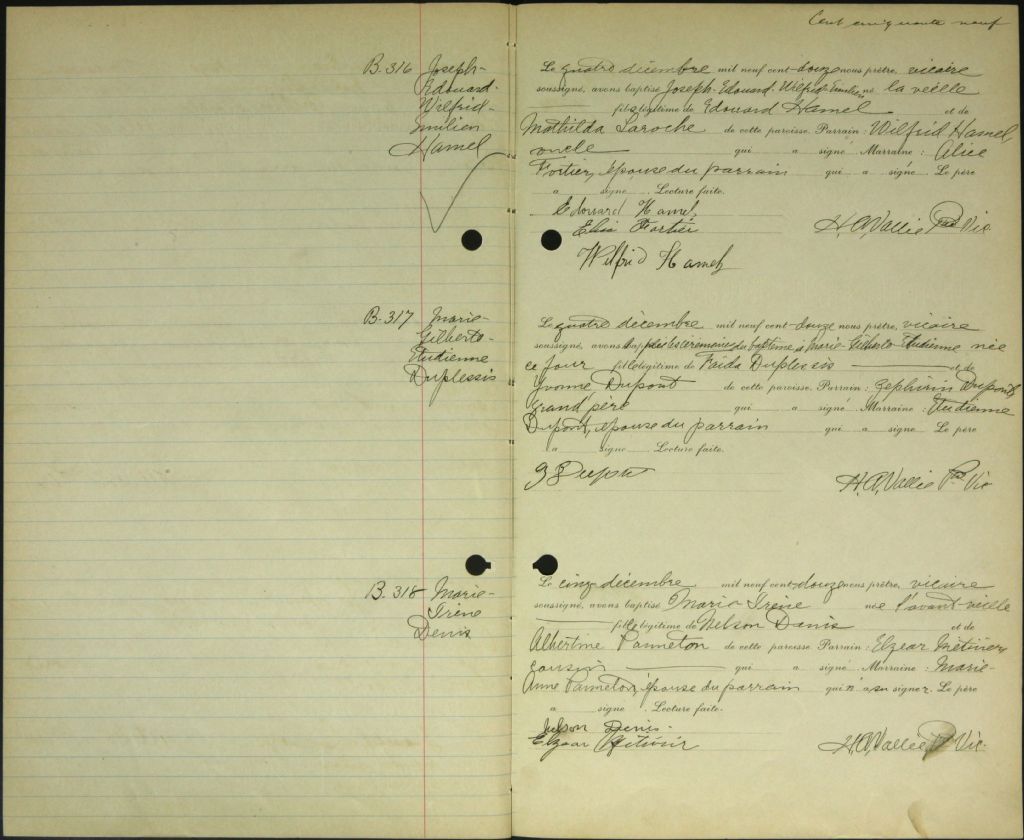 Cent cinquante neuf
B. 316 Joseph-
Edouard-
Wilfrid-
Emilien
Hamel
Le quatre décembre mil neuf cent douze nous prêtre, vicaire
soussigné, avons baptisé Joseph-Edouard-Wilfrid-Emilien né la veille
fils légitime de Edouard Hamel et de
Mathilda Laroche de cette paroisse. Parrain: Wilfrid Hamel,
oncle qui a signé. Marraine: Alice
Fortier, épouse du parrain qui a signé. Le père
a signé. Lecture faite.
Edouard Hamel
Fortier
H. A. Vallée Ptre Vic
Wilfrid Hamel
B. 317 Marie-
Gilberte-
Etudienne
Duplessis
Le quatre décembre mil neuf cent douze nous prêtre, vicaire
soussigné, avons les cérémonies du baptême à Marie-Gilberte-Etudienne née
ce jour fille légitime de Duplessis et de
Yvonne Dupont de cette paroisse. Parrain: Zephirin Dupont,
grand'père qui a signé. Marraine: Etudienne
Dupont, épouse du parrain qui a signé. Le père
a signé. Lecture faite.
Z Dupont
H. A. Vallée Ptre Vic
B. 318 Marie-
Irène
Denis
Le cinq décembre mil neuf cent douze nous prêtre, vicaire
soussigné, avons baptisé Marie Irène née l'avant-veille
fille légitime de Nelson Denis et de
Albertine Panneton de cette paroisse. Parrain: Elzear Métivier,
cousin qui a signé. Marraine: Marie-
Anne Panneton, épouse du parrain qui n'a su signer. Le père
a signé. Lecture faite.
Nelson Denis
Elzear Métivier
H. A. Vallée Ptre Vic.